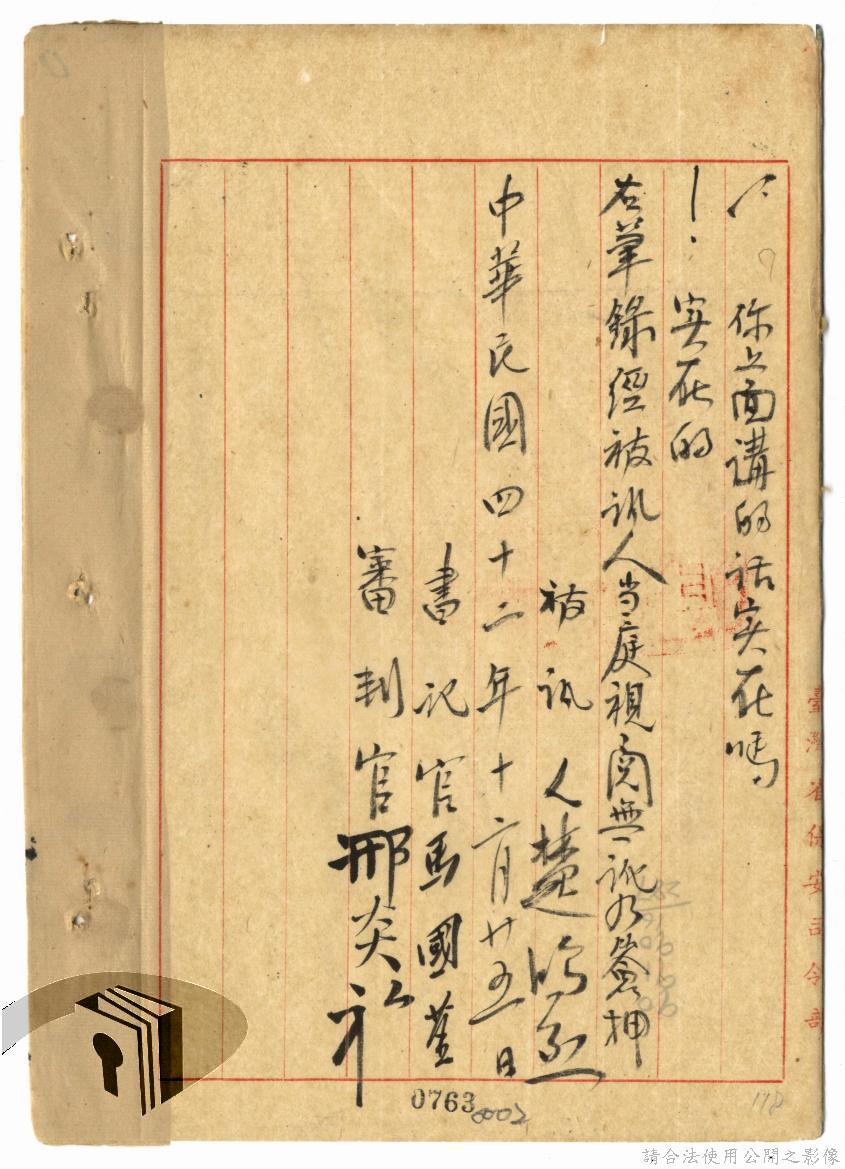 你上面講的話实在嗎
实在的
右筆錄經被訊人当庭視閱無訛乃簽押
被訊人楚
中華民國四十二年十二月廿五日
書記官馬國
審判官邢炎
臺灣省保安司令部
0763
0002
178
請合法使用公開之影像